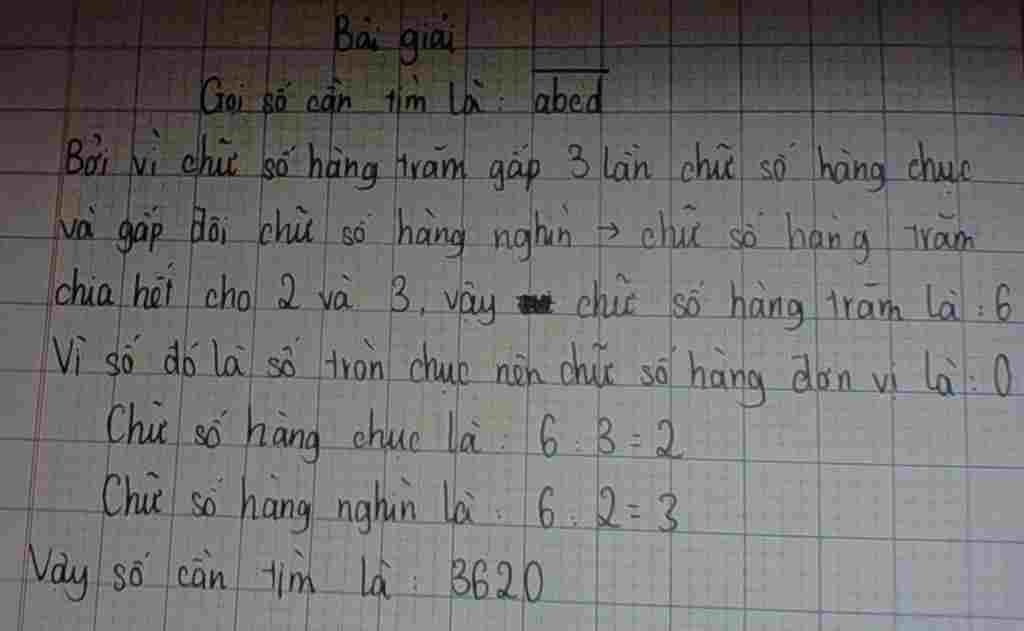 Bài giải
Gọi số cần tìm là: abcd
Bởi vì chữ số hàng trăm gấp 3 lần chữ số hàng chục
và gấp đôi chữ số hàng nghìn → chữ số hàng trăm
chia hết cho 2 và 3, vậy chữ số hàng trăm là: 6
Vì số đó là số tròn chục nên chữ số hàng đơn vị là: 0
Chữ số hàng chục là: 6 : 3 = 2
Chữ số hàng nghìn là: 6 : 2 = 3
Vậy số cần tìm là: 3620